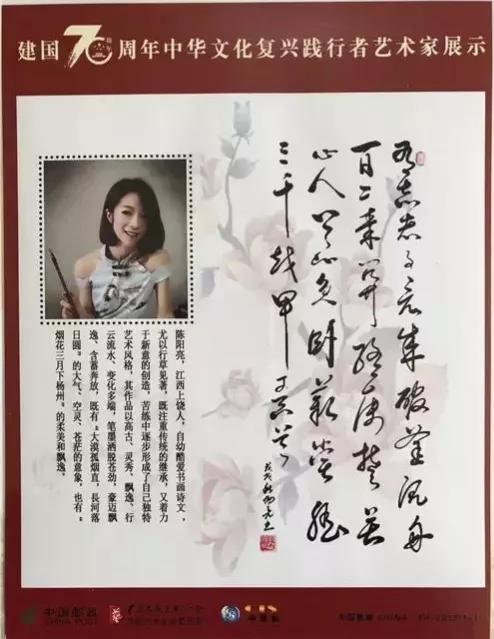 建国70周年中华文化复兴践行者艺术家展示
有志者事竟成破釜沉舟
百二秦关终属楚苦
心人天不负卧薪尝胆
三千越甲可吞吴
陈阳亮，江西上饶人，自幼酷爱书画诗文，
尤以行草见著，既注重传统的继承，又着力
于新意的创造，苦练中逐步形成了自己独特
艺术风格，其作品以高古、灵秀、飘逸、行
云流水、变化多端，笔墨洒脱苍劲，豪迈飘
逸、含蓄奔放，既有：“大漠孤烟直，長河落
日圆”的大气、空灵、苍茫的意象，也有：“
烟花三月下杨州”的柔美和飘逸。
中国邮政
CHINA POST